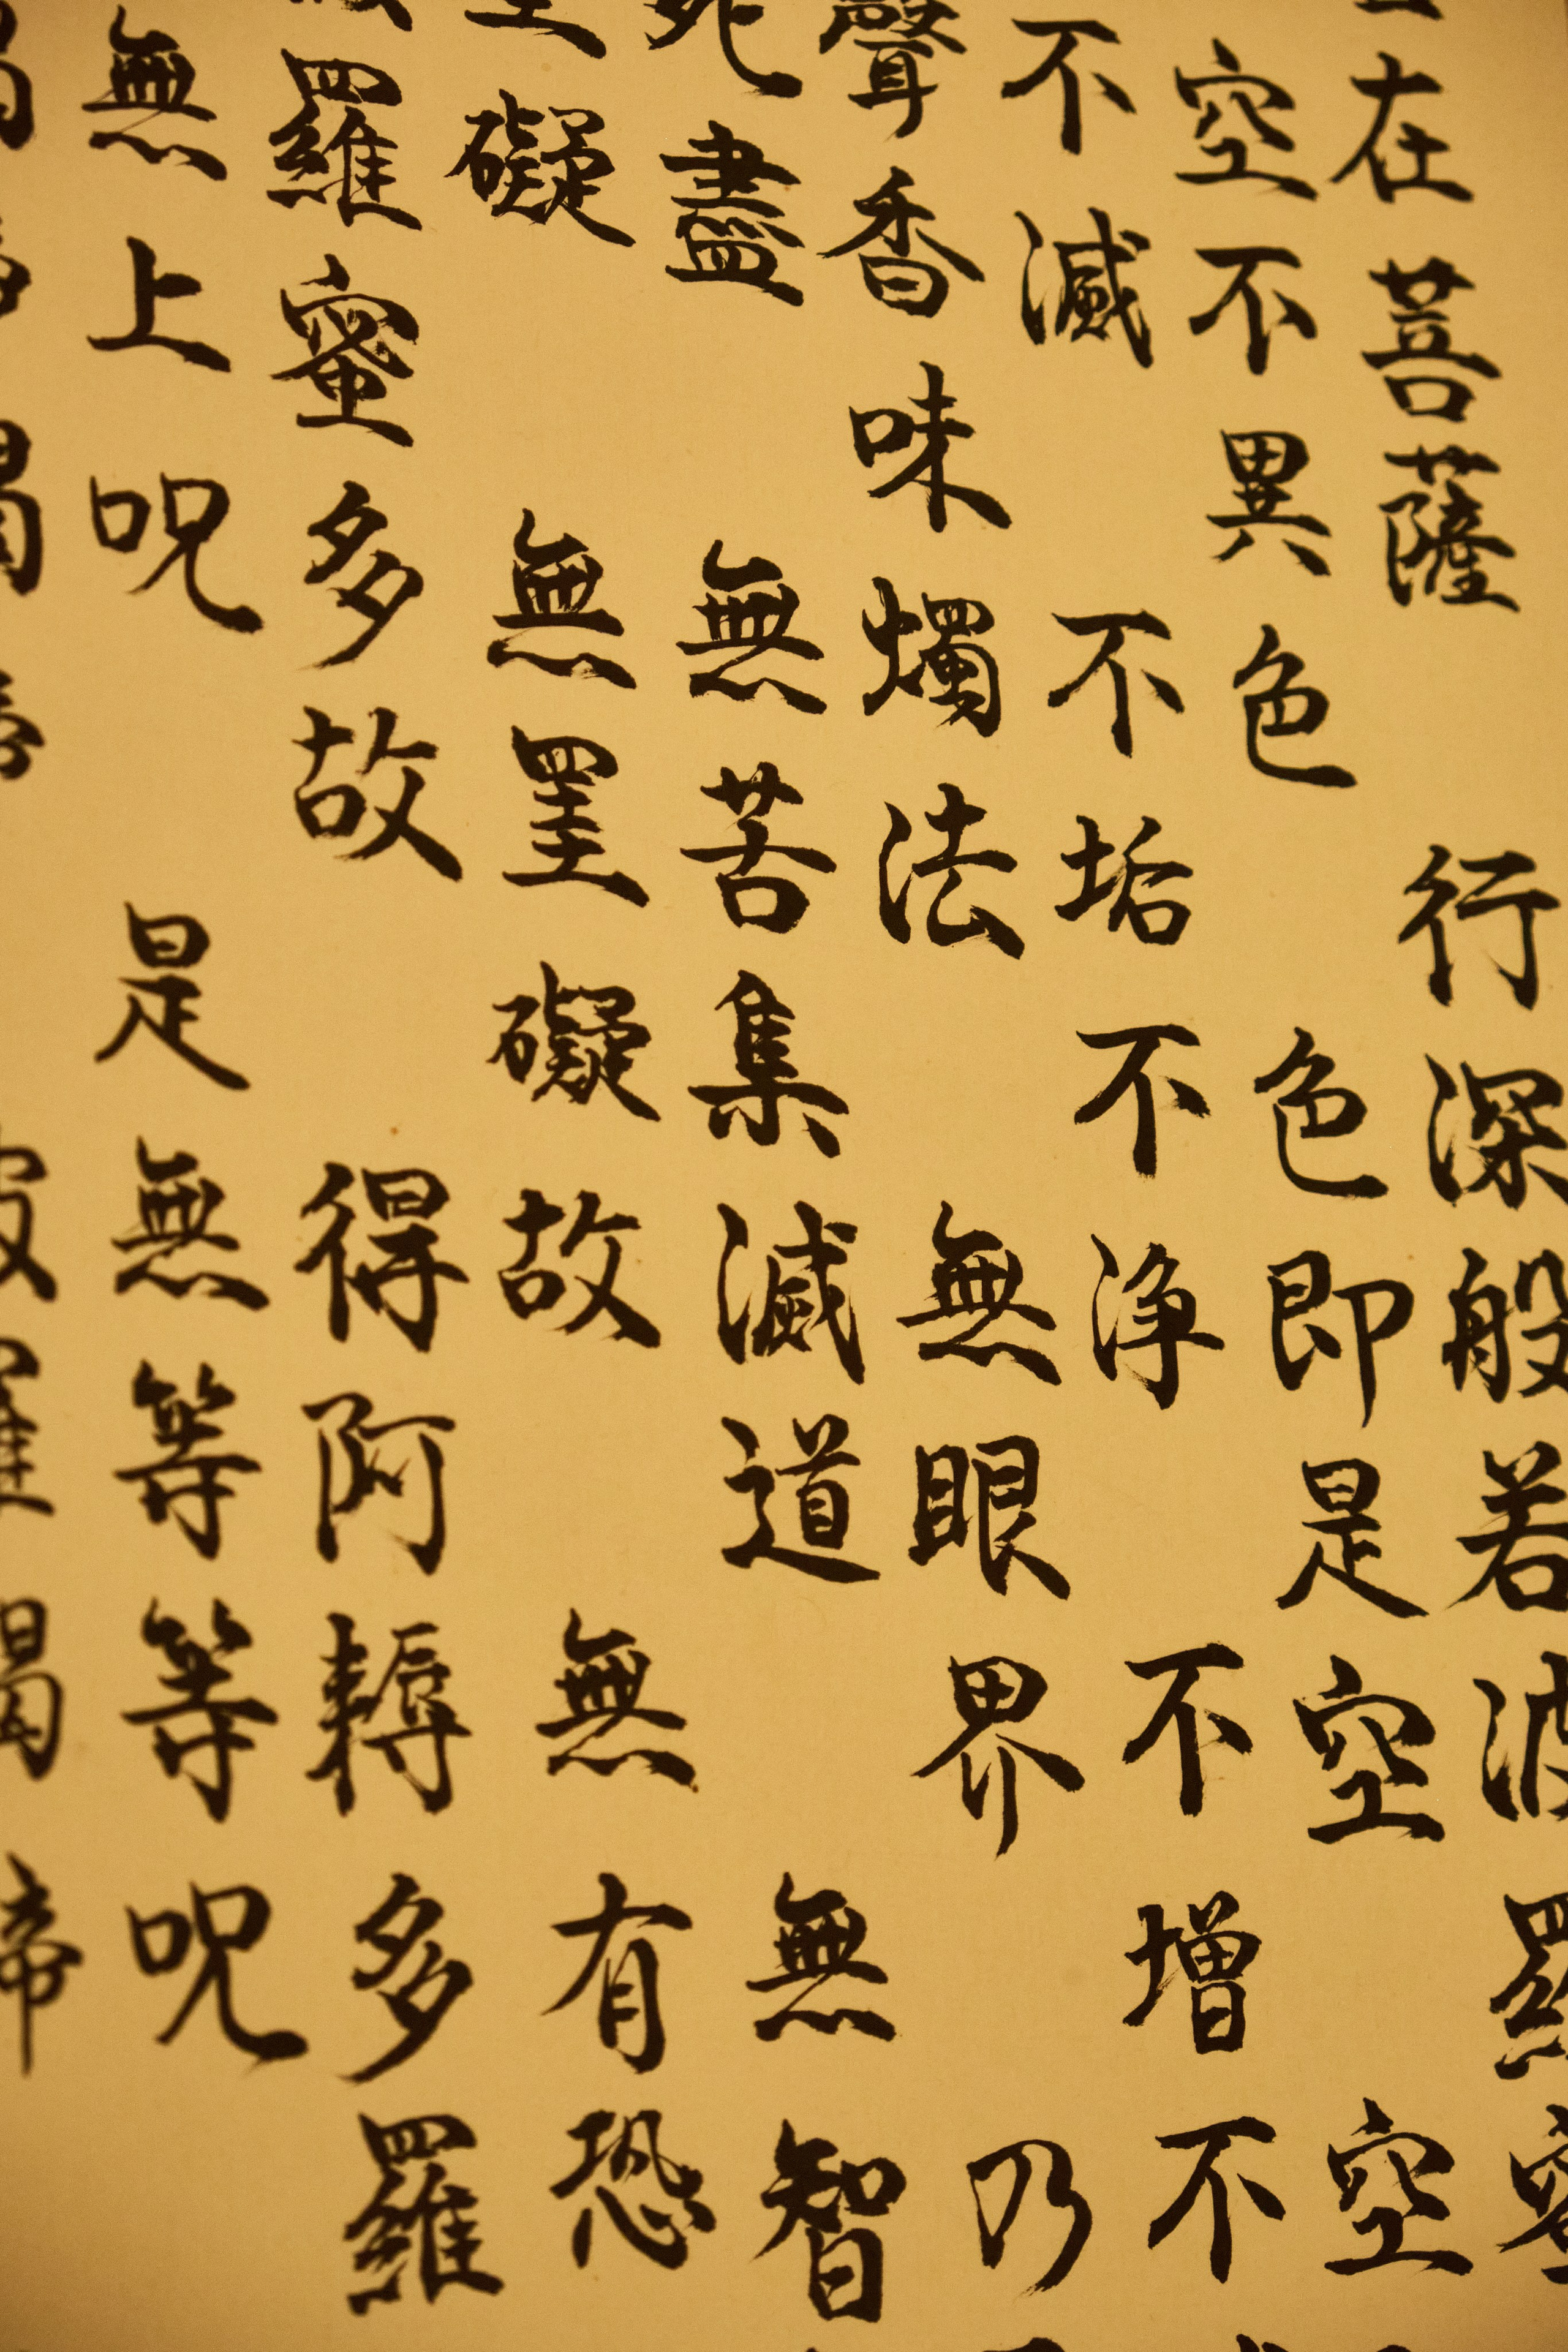 在菩薩 行深般若波羅蜜
空不異色 色即是空 空
不滅 不垢不浄 不增不
聲香味燭法 無眼界 乃
死盡 無苦集滅道 無智
礙 無罣礙故 無有恐
羅蜜多故 得阿耨多羅
無上呪 是無等等呪